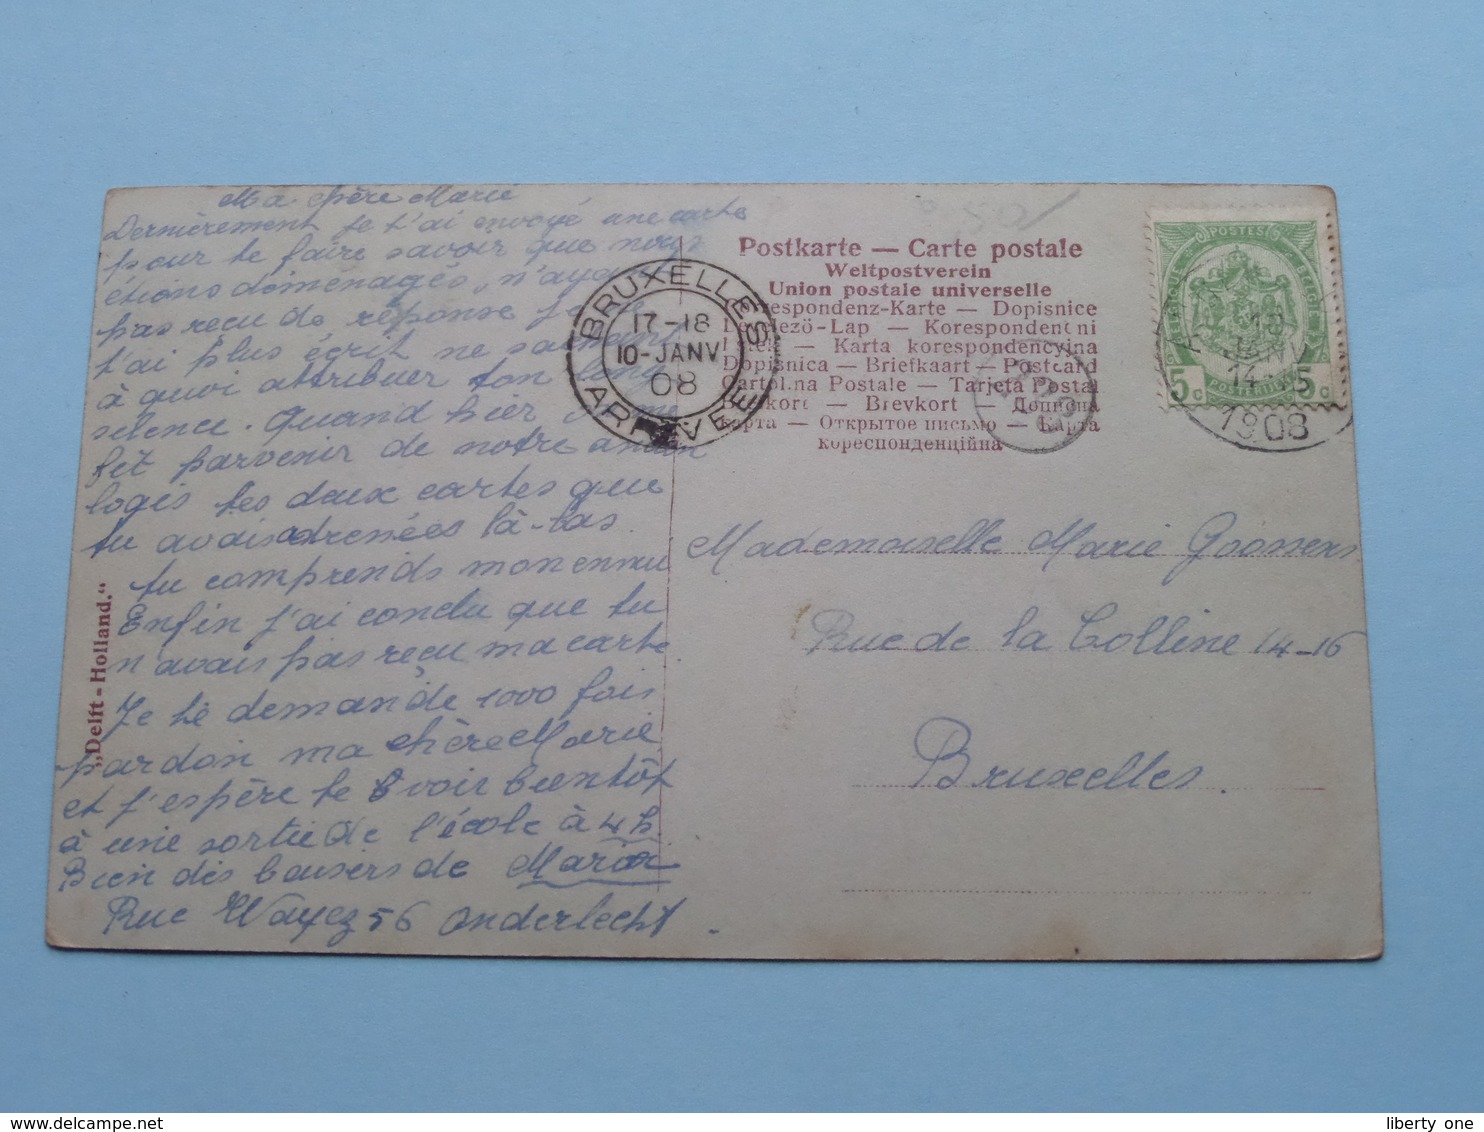 Ma chère Marie
Dernièrement je t'ai envoyé une carte
pour te faire savoir que nous
étions déménagés, n'ayant
pas reçu de réponse je
t'ai plus écrit ne sachant
à quoi attribuer ton long
silence. Quand hier
fit parvenir de notre ancien
logis tes deux cartes que
tu avais adressées là-bas
tu comprends mon ennui
Enfin j'ai conclu que tu
n'avais pas reçu ma carte
Je te demande 1000 fois
pardon ma chère Marie
et j'espère te voir bientôt
à une sortie de l'école à 4 h.
Bien des baisers de Maria
Rue Wayez 56 Anderlecht.
„Delft - Holland."
BRUXELLES
17-18
10-JANV
08
ARRIVÉE
Postkarte — Carte postale
Weltpostverein
Union postale universelle
Correspondenz-Karte — Dopisnice
Levelező-Lap — Korespondentni
Listek — Karta korespondencyjna
Dopisnica — Briefkaart — Postcard
Cartolina Postale — Tarjeta Postal
Brefkort — Brevkort — Дописна
карта — Открытое письмо — Карта
кореспонденційна
POSTES
BELGIQUE BELGIË
POSTERIJEN
5 c 5 c
10
JANV
14-
1908
Mademoiselle Marie Goossens
Rue de la Colline 14-16
Bruxelles.
liberty one